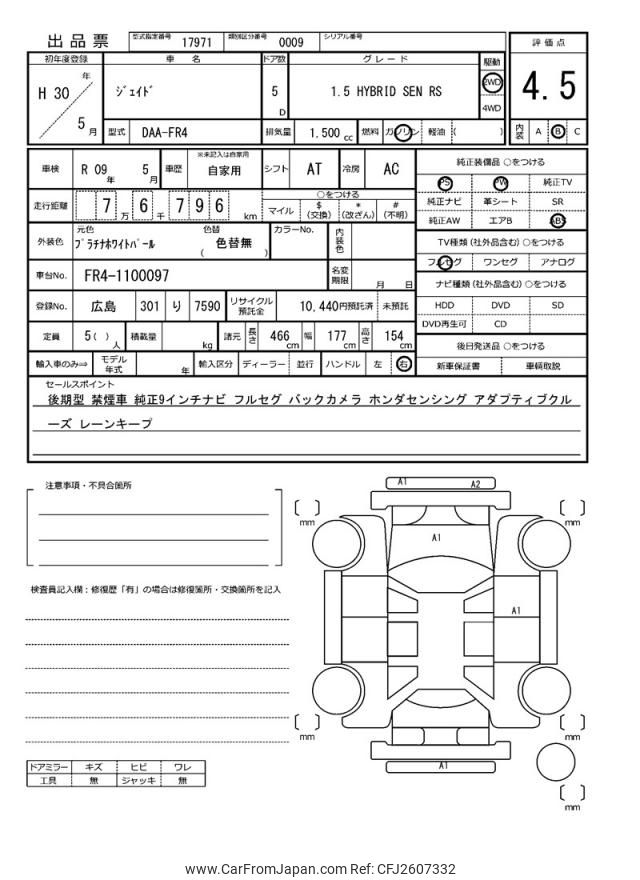 出品票 型式指定番号 17971 類別区分番号 0009 シリアル番号
評価点
4.5
内装 A B C
初年度登録 車名 ドア数 グレード 駆動
H 30 年 5 月 ｼﾞｪｲﾄﾞ 5 D 1.5 HYBRID SEN RS 2WD
4WD
型式 DAA-FR4 排気量 1.500 cc 燃料 ガソリン 軽油 ( )
車検 R 09 年 5 月 車歴 ※未記入は自家用 自家用 シフト AT 冷房 AC
走行距離 7 万 6 千 7 9 6 km
○をつける
マイル $ (交換) * (改ざん) # (不明)
外装色 元色 ﾌﾟﾗﾁﾅﾎﾜｲﾄﾊﾟｰﾙ 色替 ( 色替無 ) カラーNo. 内装色
車台No. FR4-1100097 名変期限 月 日
登録No. 広島 301 り 7590 リサイクル預託金 10,440円預託済 未預託
定員 5 ( ) 人 積載量 kg 諸元 長さ 466 cm 幅 177 cm 高さ 154 cm
輸入車のみ⇒ モデル年式 年 輸入区分 ディーラー 並行 ハンドル 左 右
純正装備品 ○をつける
PS PW 純正TV
純正ナビ 革シート SR
純正AW エアB ABS
TV種類 (社外品含む) ○をつける
フルセグ ワンセグ アナログ
ナビ種類 (社外品含む) ○をつける
HDD DVD SD
DVD再生可 CD
後日発送品 ○をつける
新車保証書 車輌取説
セールスポイント
後期型 禁煙車 純正9インチナビ フルセグ バックカメラ ホンダセンシング アダプティブクル
ーズ レーンキープ
注意事項・不具合箇所
検査員記入欄：修復歴「有」の場合は修復箇所・交換箇所を記入
ドアミラー キズ ヒビ ワレ
工具 無 ジャッキ 無
A1 A2
mm mm
A1
A1
mm mm
A1
mm
www.CarFromJapan.com Ref: CFJ2607332